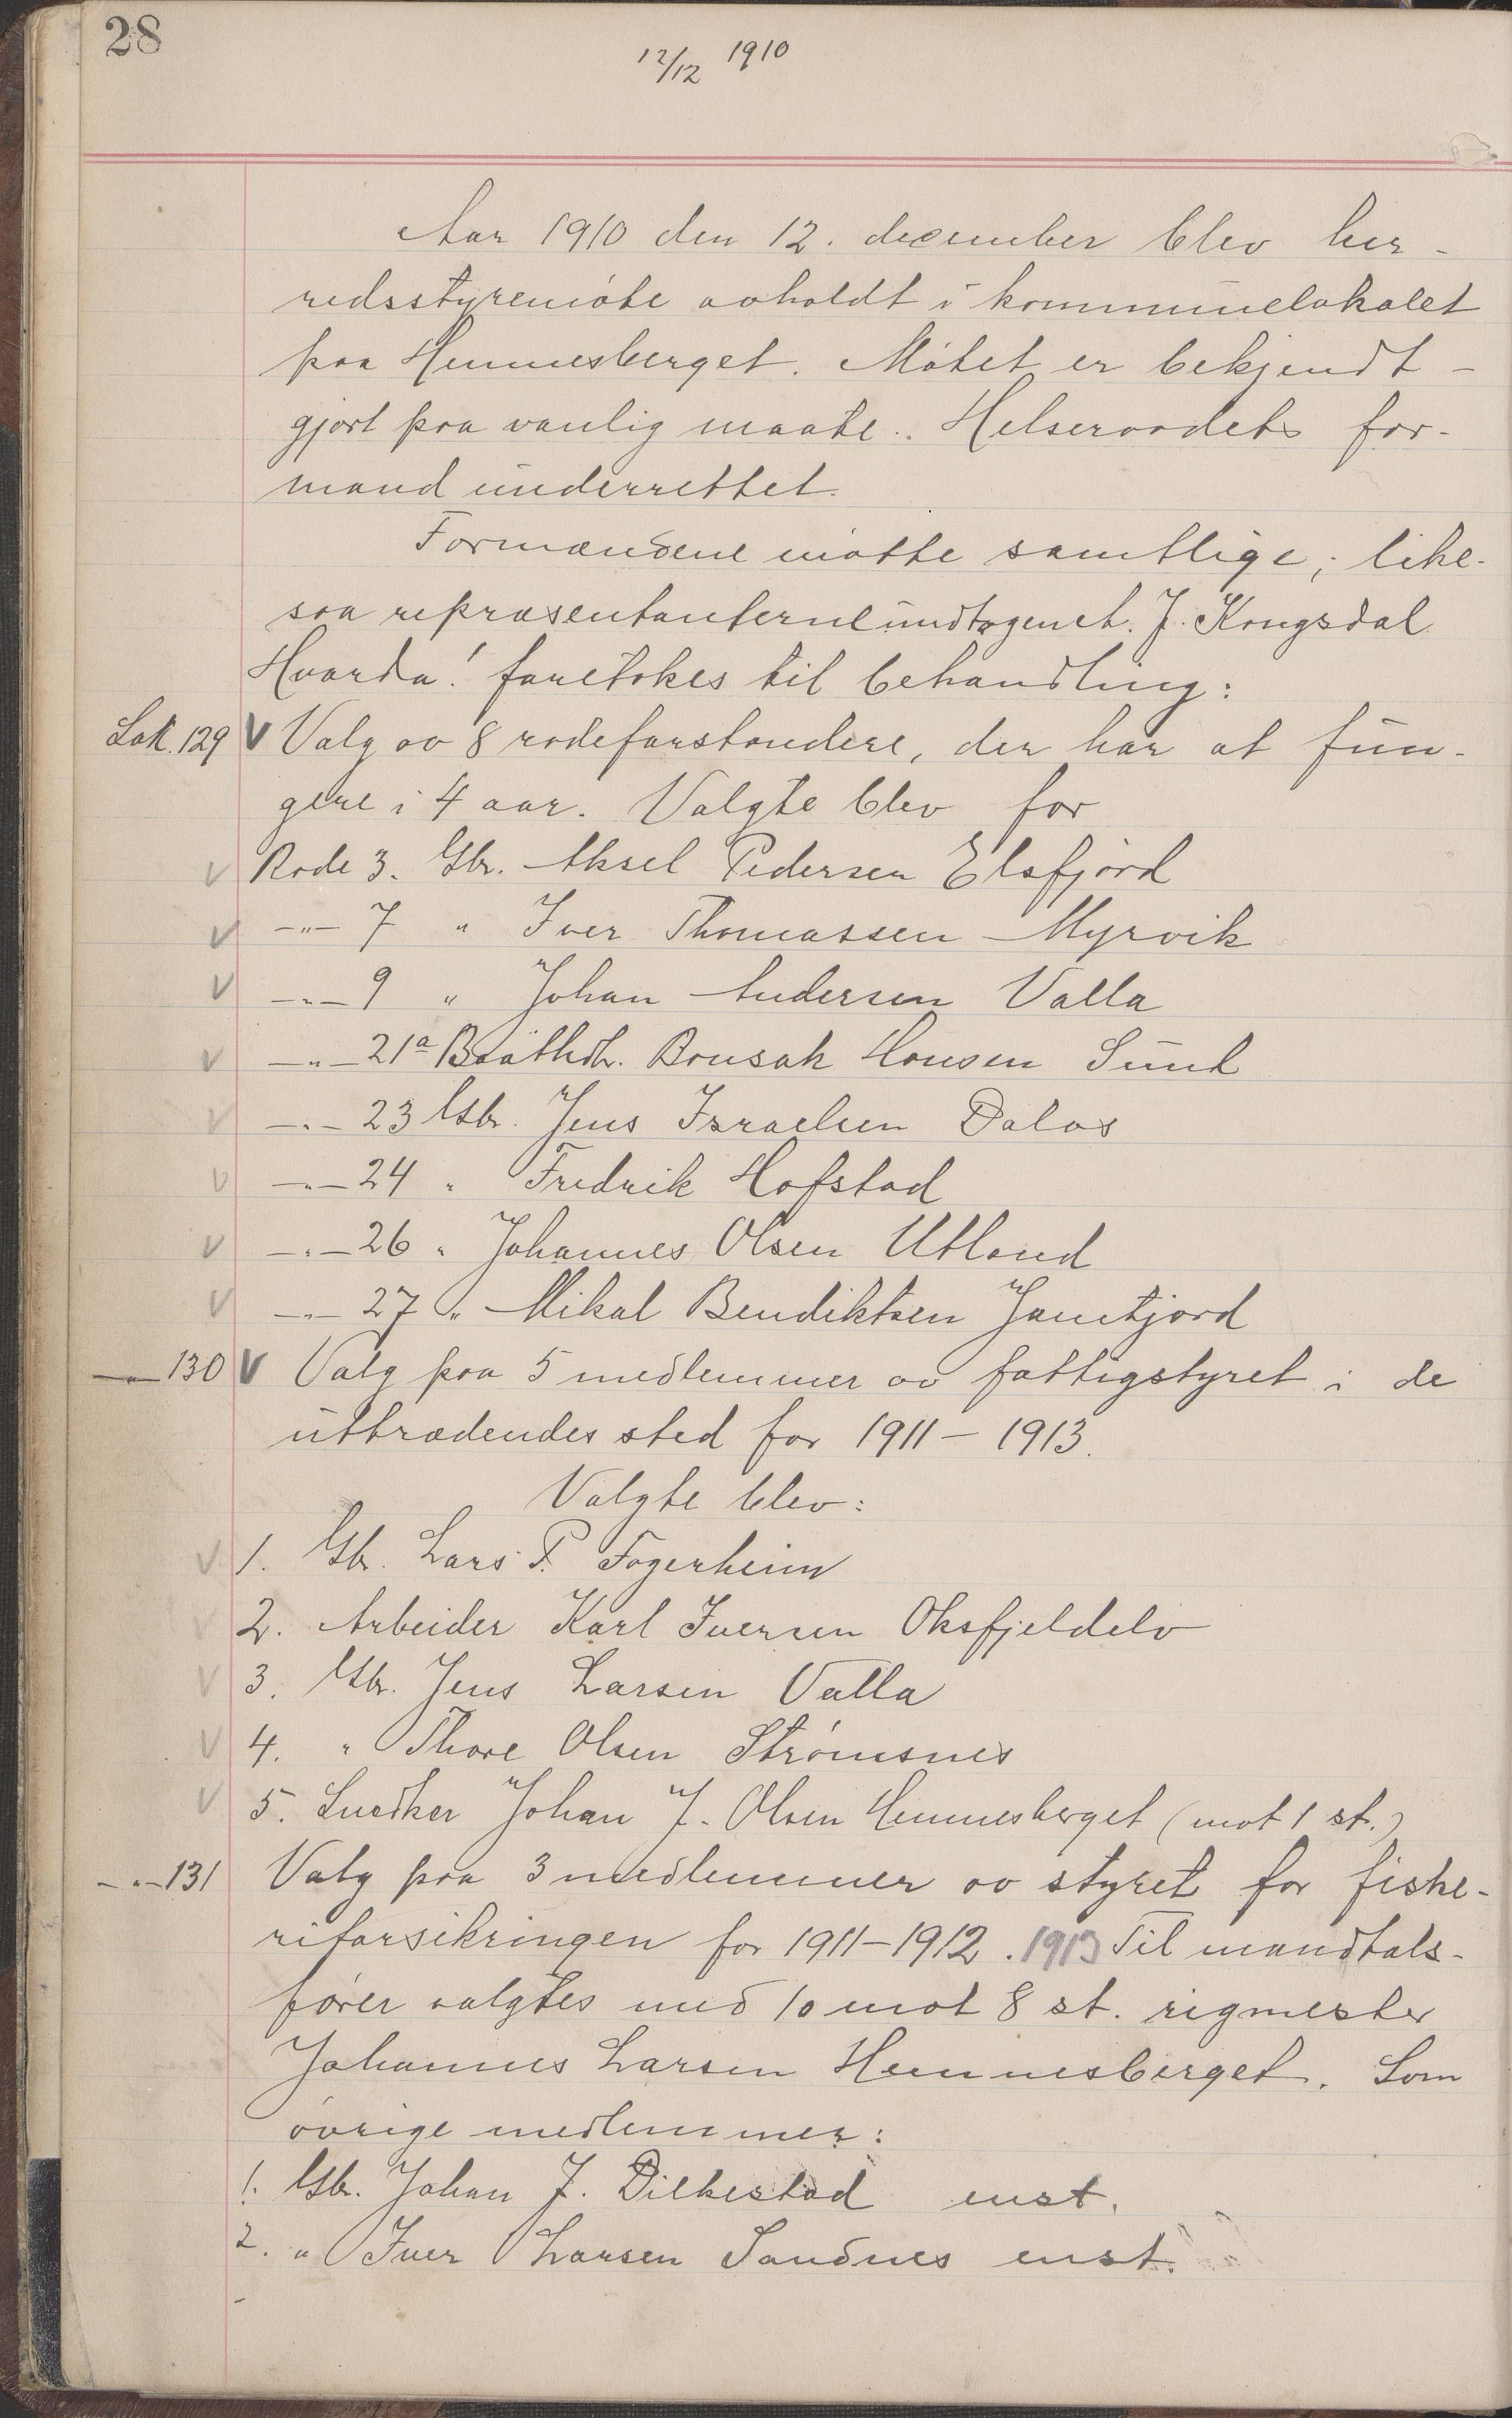 28
12/12 1910
Aar 1910 den 12. december blev her-
redsstyremöte avholdt i kommunelokalet
paa Hemnesberget. Mötet er bekjendt-
gjort paa vanlig maate. Helseraadets for-
mand underrettet.
Formændene mötte samtlige; like-
saa repræsentanterne undtagent. J. Kongsdal
Hvorda! foretokes til behandling:
Sak. 129 V Valg av 8 rodeforstandere, der har at fun-
gere i 4 aar. Valgte blev for
V Rode 3. Gbr. Aksel Pedersen Elsfjord
V —"— 7 " Iver Thomassen Myrvik
V —"— 9 " Johan Andersen Valla
V —"— 21a Bonsak Hansen Sund
V —"— 23 Gbr. Jens Israelsen Dalos
V —"— 24 " Fredrik Hofstad
V —"— 26 " Johannes Olsen Utland
V —"— 27 " Mikal Bendiktsen Jamtjord
—"— 130 V Valg paa 5 medlemmer av fattigstyret i de
uttrædendes sted for 1911 – 1913.
Valgte blev:
V 1. Gbr. Lars P. Fagerheim
V 2. Arbeider Karl Iversen Oksfjeldelv
V 3. Gbr. Jens Larsen Valla
V 4. " Thore Olsen Strömsnes
V 5. Snedker Johan J. Olsen Hemnesberget (mot 1 st.)
—"— 131 Valg paa 3 medlemmer av styret for fiske-
riforsikringen for 1911–1912. 1913 Til mandtals-
förer valgtes med 10 mot 8 st. rigmester
Johannes Larsen Hemnesberget. Som
övrige medlemmer:
1. Gbr. Johan J. Dilkestad enst.
2. " Iver Larsen Sandnes enst.